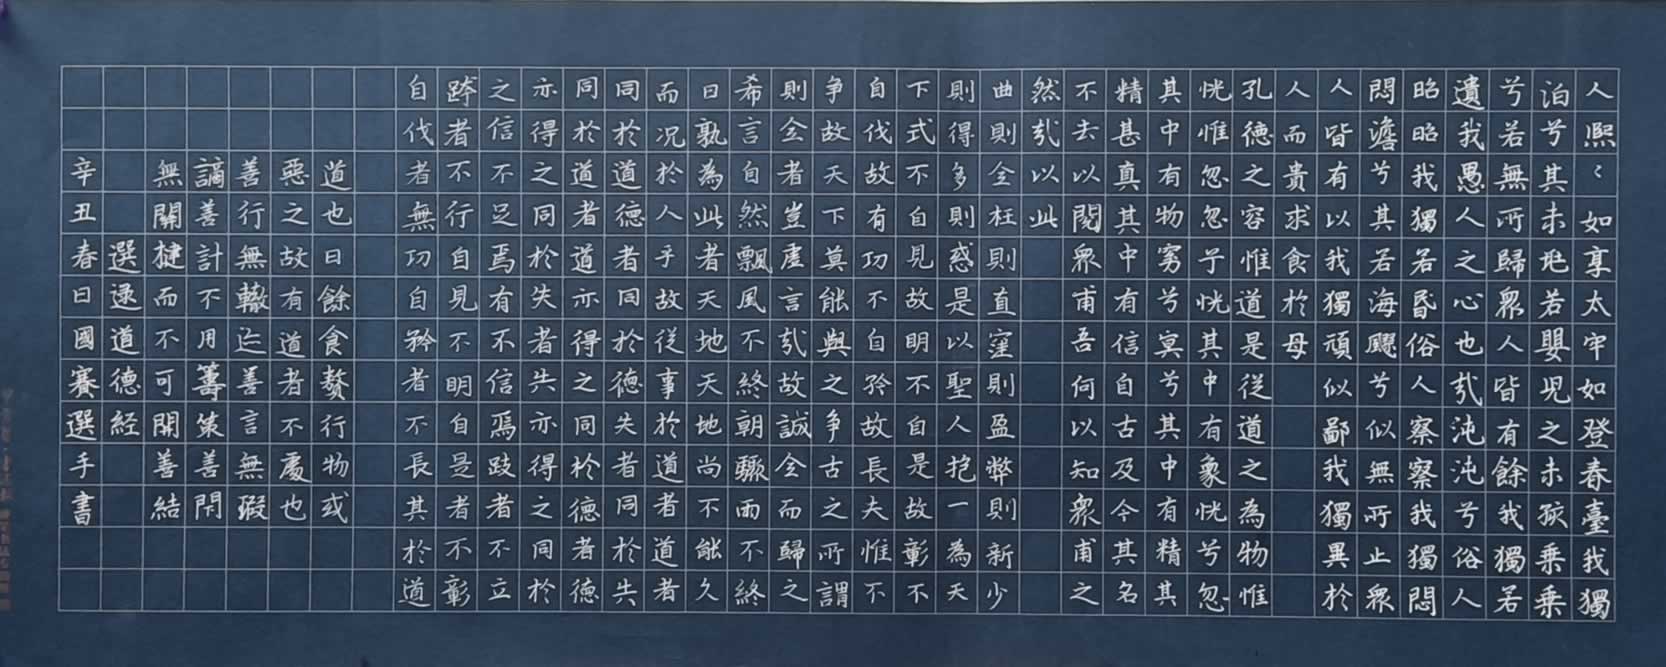 人熙〻如享太牢如登春臺我獨
泊兮其未兆若嬰児之未孩乗乗
兮若無所歸衆人皆有餘我獨若
遺我愚人之心也㢤沌沌兮俗人
昭昭我獨若昬俗人察察我獨悶
悶澹兮其若海飂兮似無所止衆
人皆有以我獨頑似鄙我獨異於
人而貴求食於母
孔德之容惟道是従道之為物惟
恍惟忽忽兮恍其中有象恍兮忽
其中有物窈兮冥兮其中有精其
精甚真其中有信自古及今其名
不去以閱衆甫吾何以知衆甫之
然㢤以此
曲則全枉則直窪則盈弊則新少
則得多則惑是以聖人抱一為天
下式不自見故明不自是故彰不
自伐故有功不自矜故長夫惟不
争故天下莫能與之争古之所謂
則全者豈虚言㢤故誠全而歸之
希言自然飄風不終朝驟雨不終
日孰為此者天地天地尚不能久
而况於人乎故従事於道者道者
同於道德者同於德失者同於失
同於道者道亦得之同於德者德
亦得之同於失者失亦得之同於
之信不足焉有不信焉跂者不立
跨者不行自見不明自是者不彰
自伐者無功自矜者不長其於道
道也曰餘食贅行物或
惡之故有道者不處也
善行無轍迹善言無瑕
讁善計不用籌策善閇
無關揵而不可開善結
選逯道德経
辛丑春日國賽選手書